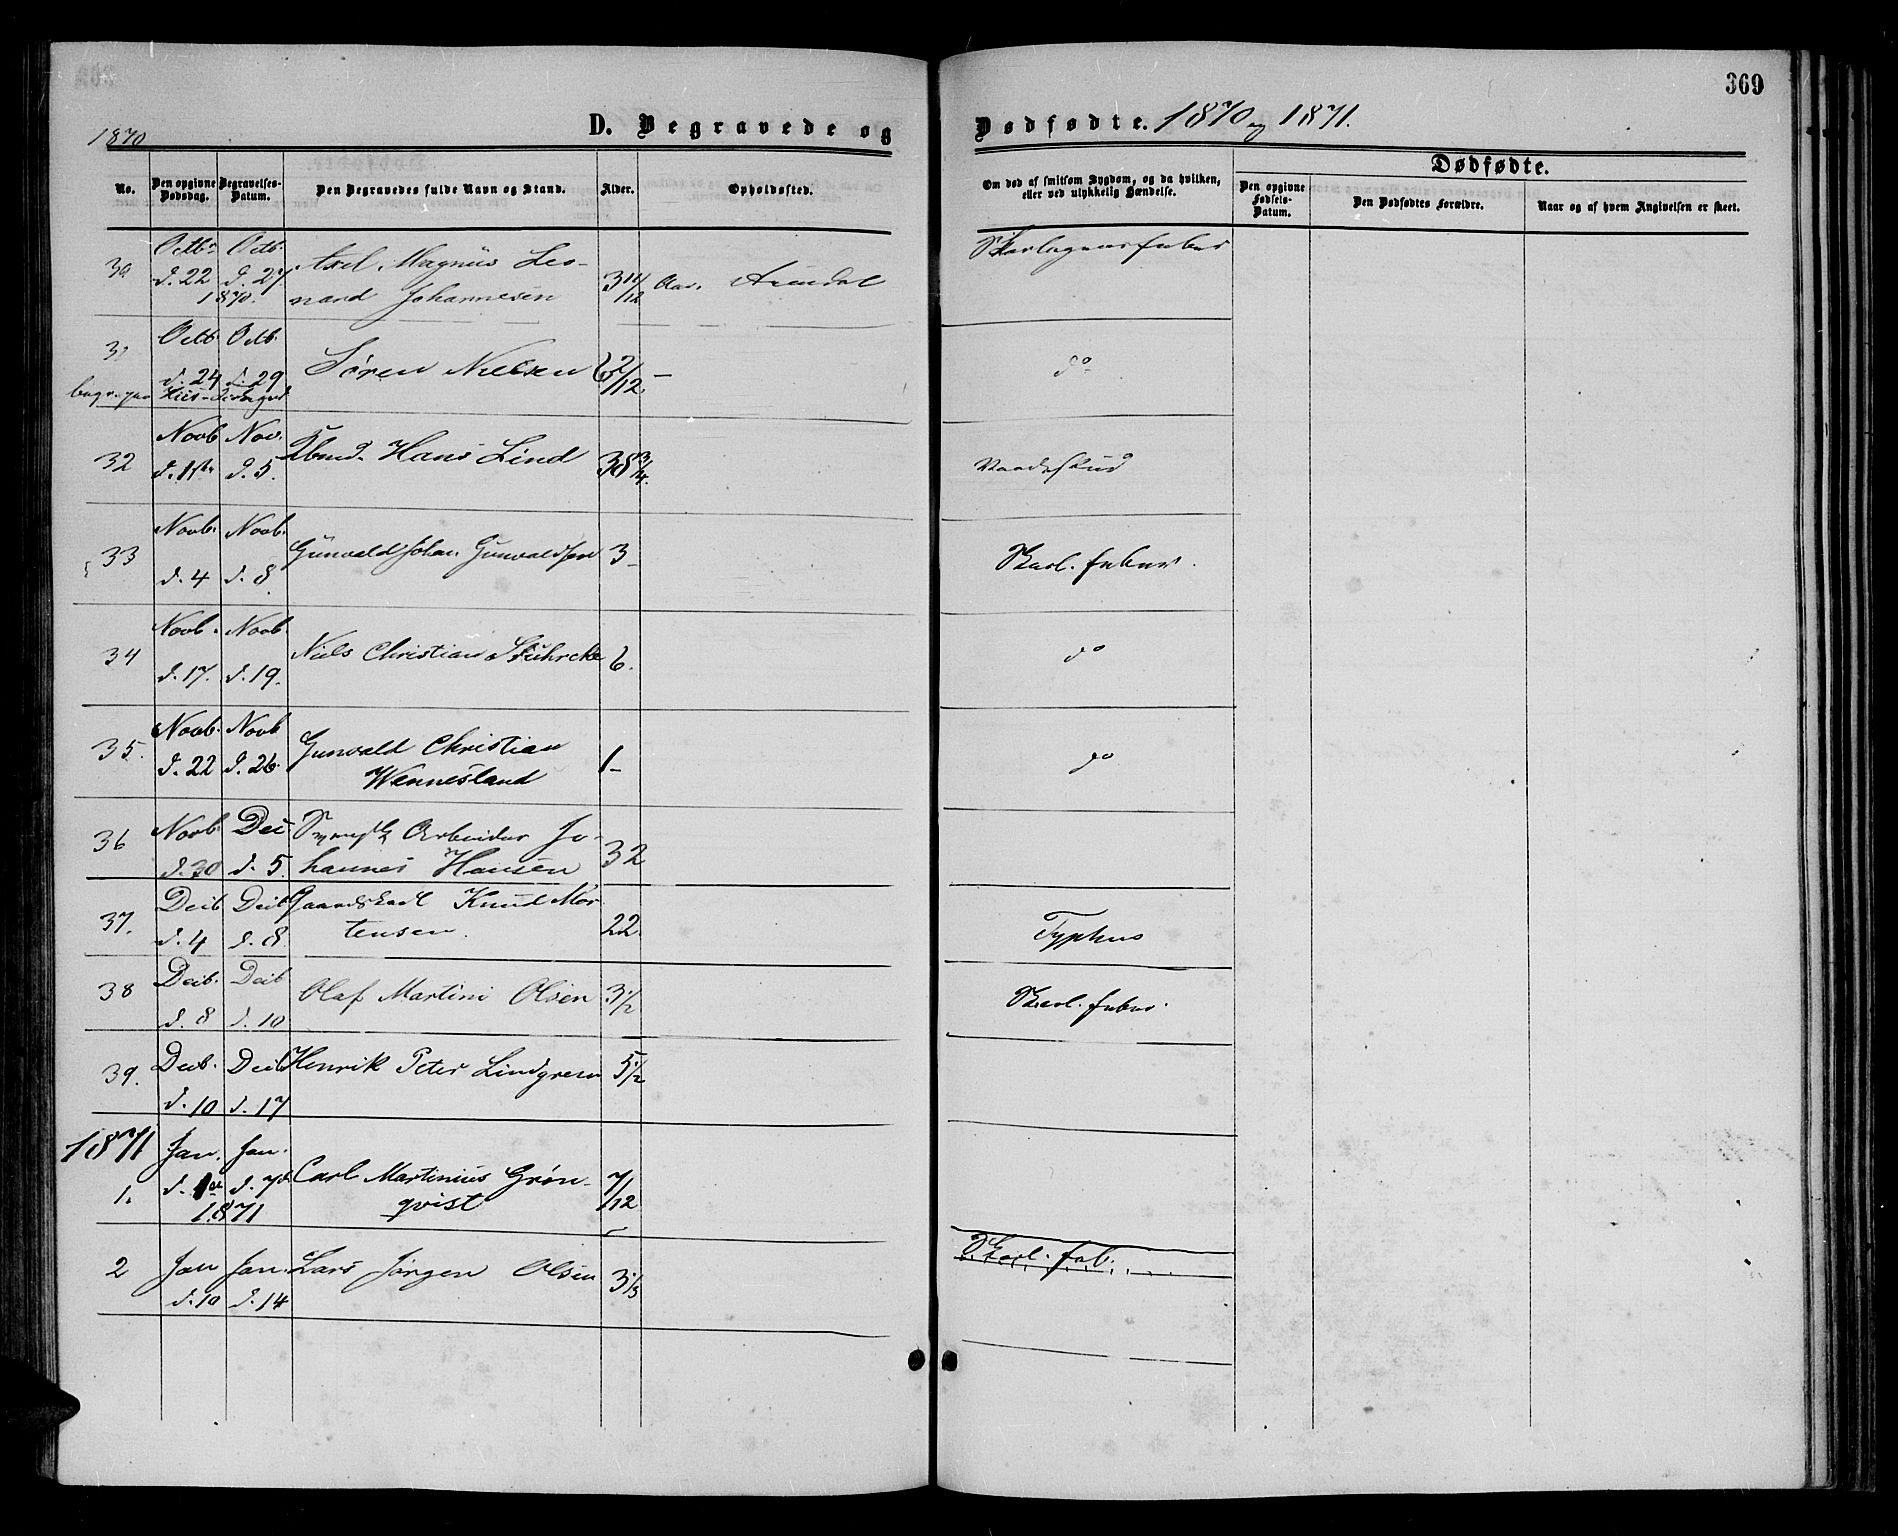 369
1870
D. Begravede og
Dødfødte. 1870 og 1871.
No.
Den opgivne Dødsdag.
Begravelses-Datum.
Den Begravedes fulde Navn og Stand.
Alder.
Opholdssted.
Om død af smitsom Sygdom, og da hvilken, eller ved ulykkelig Hændelse.
Dødfødte.
Den opgivne Fødsels-Datum.
Den Dødfødtes Forældre.
Naar og af hvem Angivelsen er skeet.
30 Octb. d. 22 Octb. d. 27 1870. Axel Magnus Leo-
nard Johannesen 3 11/12 Aar. Arendal Skarlagensfeber
31 Octb. d. 24 Octb. d. 29 Søren Nielsen 6 2/12 — do
begr. paa
32 Novb d. 1ste Nov. d. 5. Kbmd. Hans Lind 38 3/4. Vaadeskud
33 Novb. d. 4 Novb. d. 8. Gunvald Johan Gunvaldsen 3 – Skarl. feber.
34 Novb. d. 17. Novb. d. 19. Niels Christian Stuhrcke 6. do
35. Novb. d. 22 Novb d. 26. Gunvald Christian
Wennesland 1 – do
36 Novb. d. 30 Dec. d. 5. Svensk Arbeider Jo-
hannes Hansen 32
37. Decb d. 4 Decb d. 8. Gaardskarl Knud Mor
tensen. 22. Typhus
38 Decb. d. 8 Decb d. 10 Olaf Martin Olsen 3 1/2 Skarl. feber.
39. Decb. d. 10 Decb d. 17 Henrik Peter Lindgreen 5 1/2
1871
1. Jan. d. 1ste Jan. d. 7de 1871 Carl Martinius Grøn-
qvist 7/12
2 Jan d. 10 Jan. d. 14 Lars Jørgen Olsen 3 1/3 Skarl. feb.